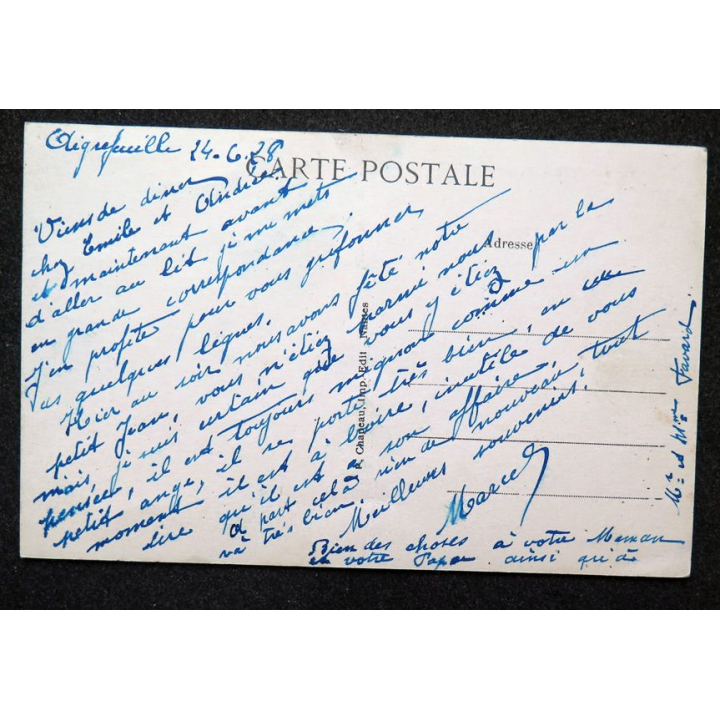 Aigrefeuille 24-6-28
CARTE POSTALE
Viens de diner
chez Emile et Andrée
et maintenant avant
d'aller au lit je me mets
en grande correspondance,
J'en profite pour vous grifonner
quelques lignes.
Hier au soir nous avons fêté notre
petit Jean, vous n'étiez parmi nous par la
mais je suis certain que vous y étiez
pensée, il est toujours mignon comme un
petit ange, il se porte très bien, en ce
moment il est à boire, inutile de vous
dire qu'il est à son affaire,
à part cela rien de nouveau, tout
và très bien.
Meilleurs souvenirs.
Marcel
Bien des choses à votre Maman
et votre Papa ainsi qu'à
Mr et Mme Favard.
Adresse
Chapeau, Imp. Edit. Nantes